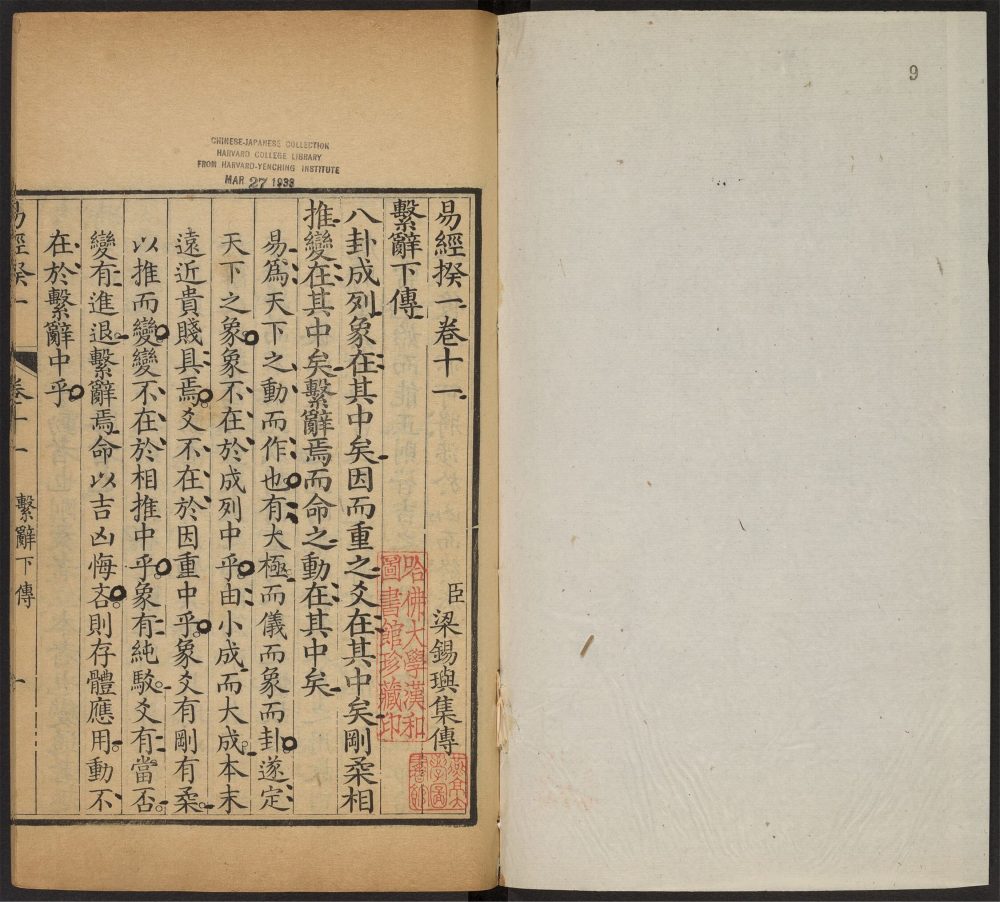 9
CHINESE-JAPANESE COLLECTION
HARVARD COLLEGE LIBRARY
FROM HARVARD-YENCHING INSTITUTE
MAR 27 1933
易經揆一卷十一
臣梁錫璵集傳
繫辭下傳
八卦成列象在其中矣因而重之爻在其中矣剛柔相
推變在其中矣繫辭焉而命之動在其中矣
易爲天下之動而作也有太極而儀而象而卦遂定
天下之象象不在於成列中乎由小成而大成本末
遠近貴賤具焉爻不在於因重中乎象爻有剛有柔
以推而變變不在於相推中乎象有純駁爻有當否
變有進退繫辭焉命以吉凶悔吝則存體應用動不
在於繫辭中乎
易經揆一
卷十一
繫辭下傳
一
哈佛大學漢和
圖書館珍藏印